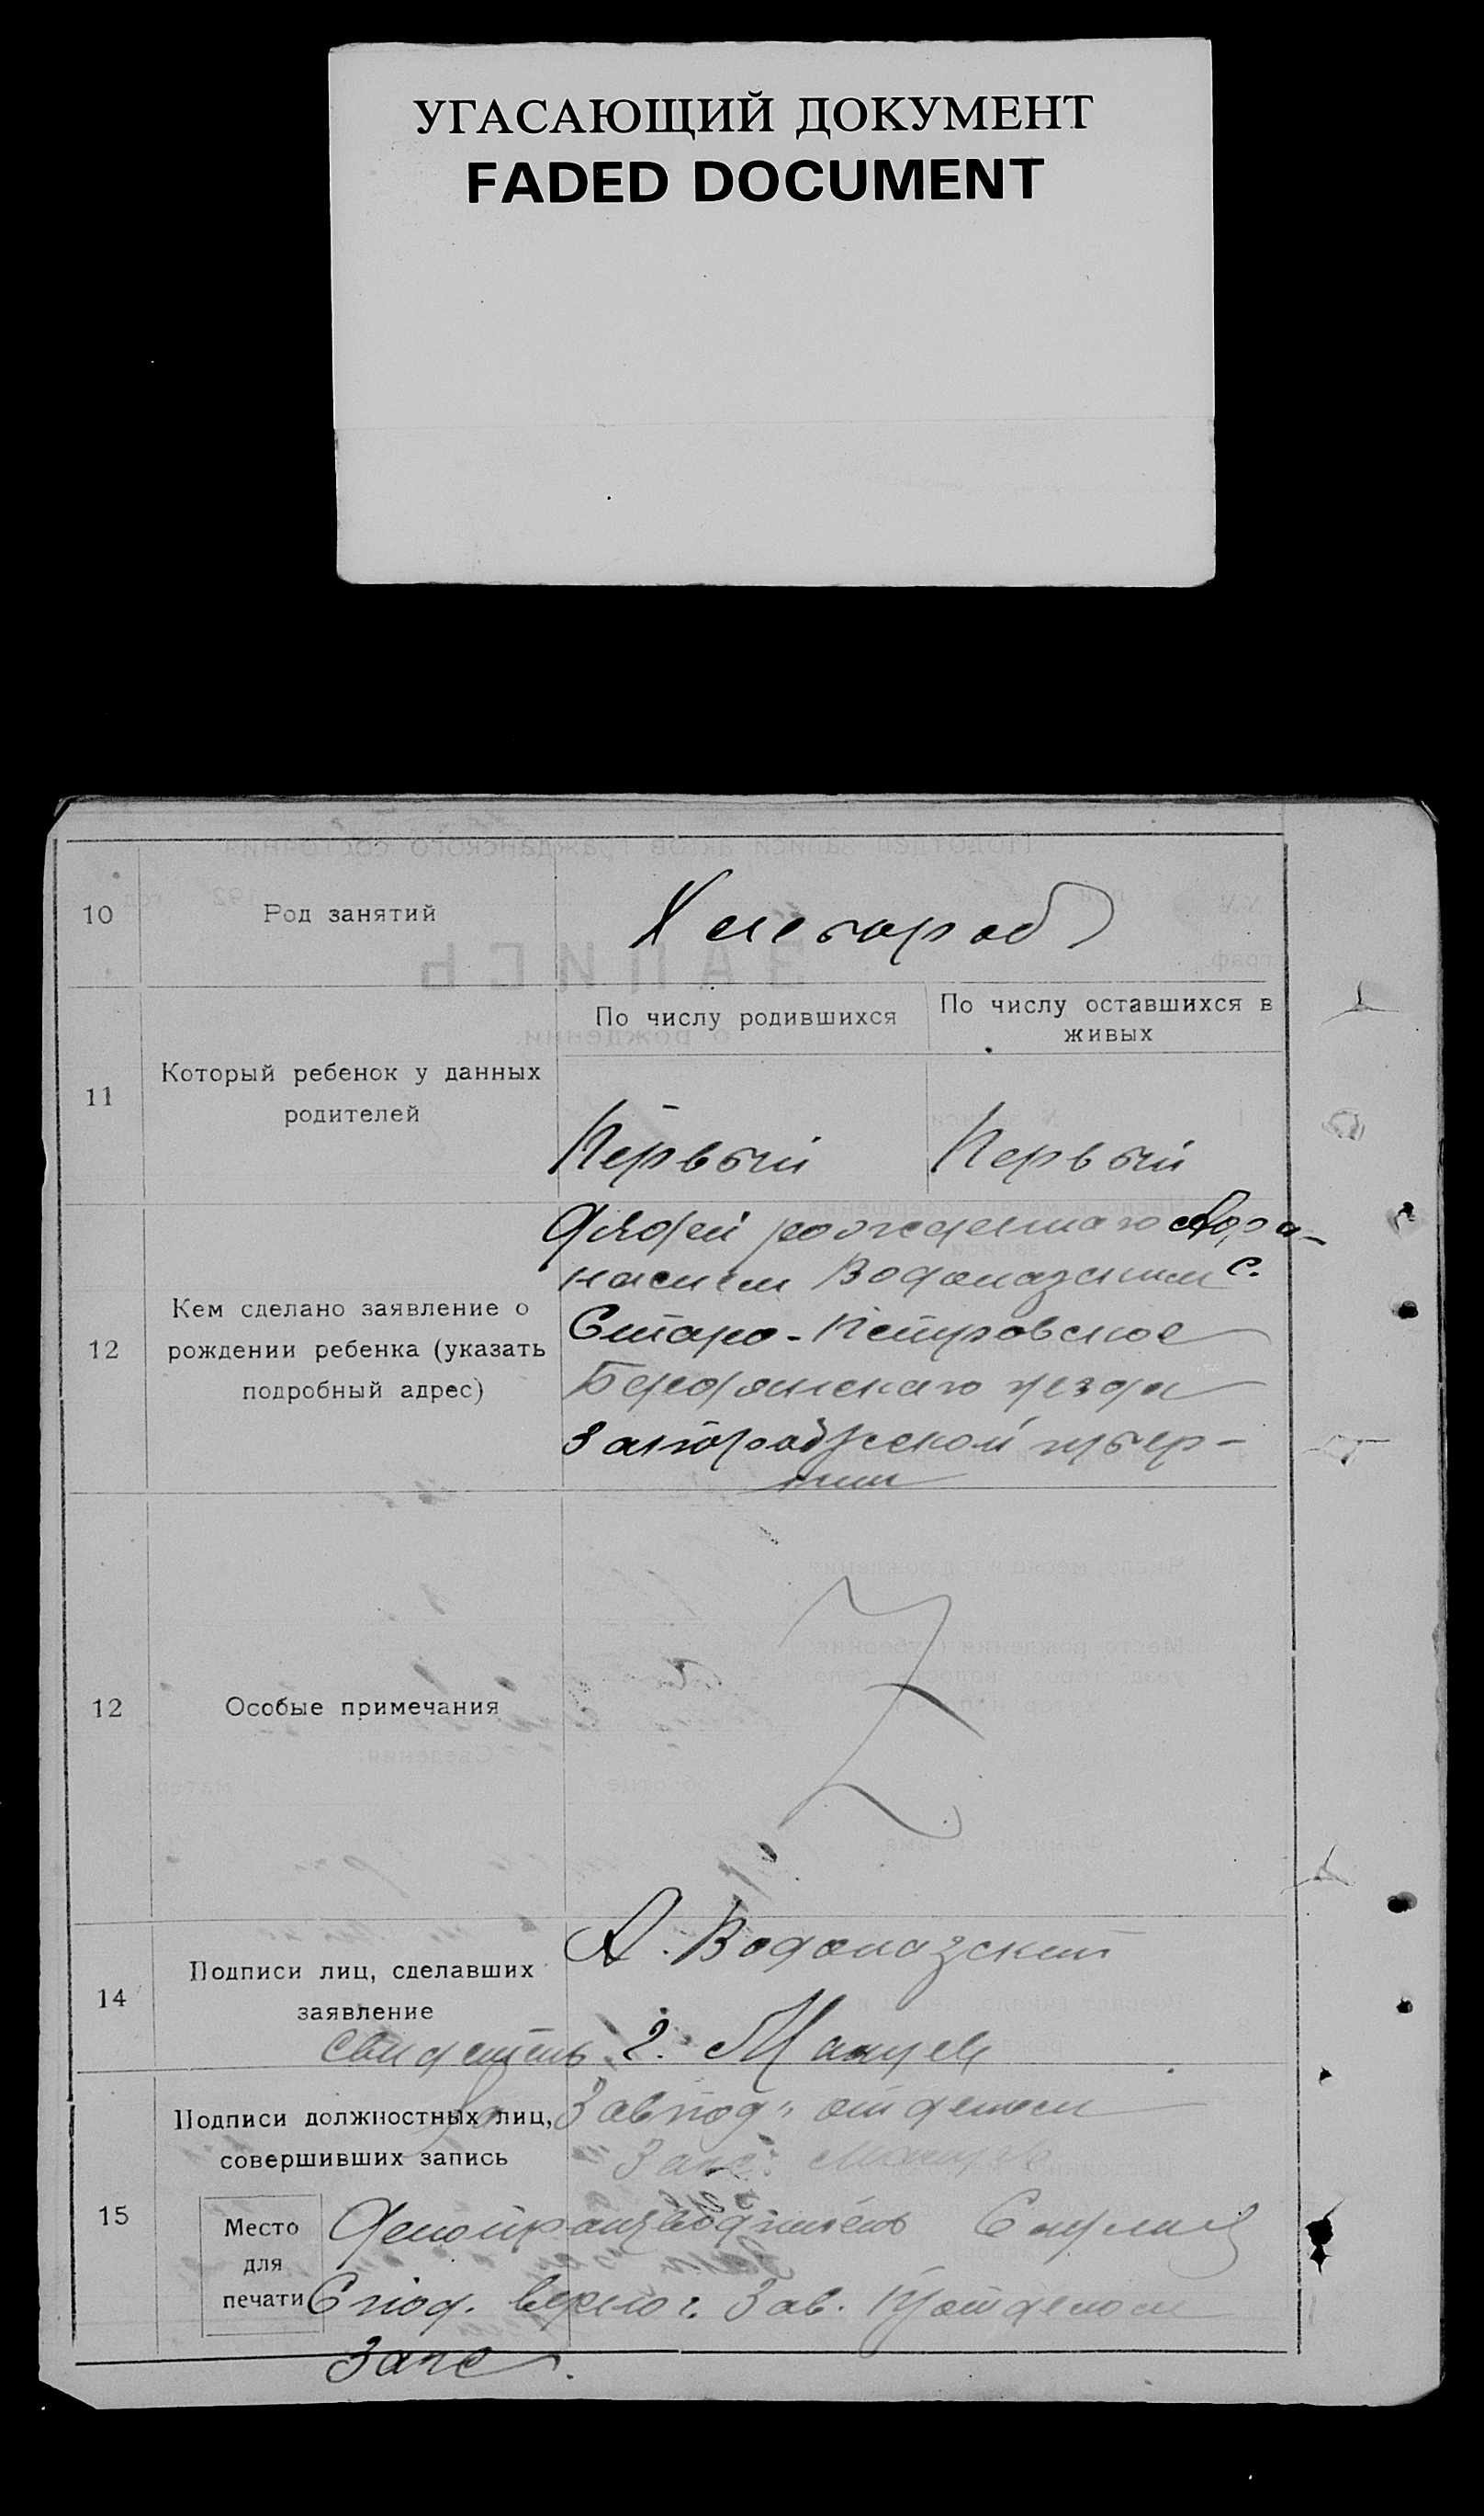 УГАСАЮЩИЙ ДОКУМЕНТ
FADED DOCUMENT
10
Род занятий
Хлебороб
11
Который ребенок у данных
родителей
По числу родившихся
По числу оставшихся в
живых
Первый
Первый
12
Кем сделано заявление о
рождении ребенка (указать
подробный адрес)
Дядей рожденнаго Афа-
насием Водолазским с.
Старо-Петровское
Бердянскаго уезда
Запорожской губер-
нии
12
Особые примечания
14
Подписи лиц, сделавших
заявление
А. Водолазский
Свидетель г.
15
Подписи должностных лиц,
совершивших запись
Завпод. отделом
Загс.
Место
для
печати
Делопроизводитель
С под. верно: Зав. П/отделом
Загс.